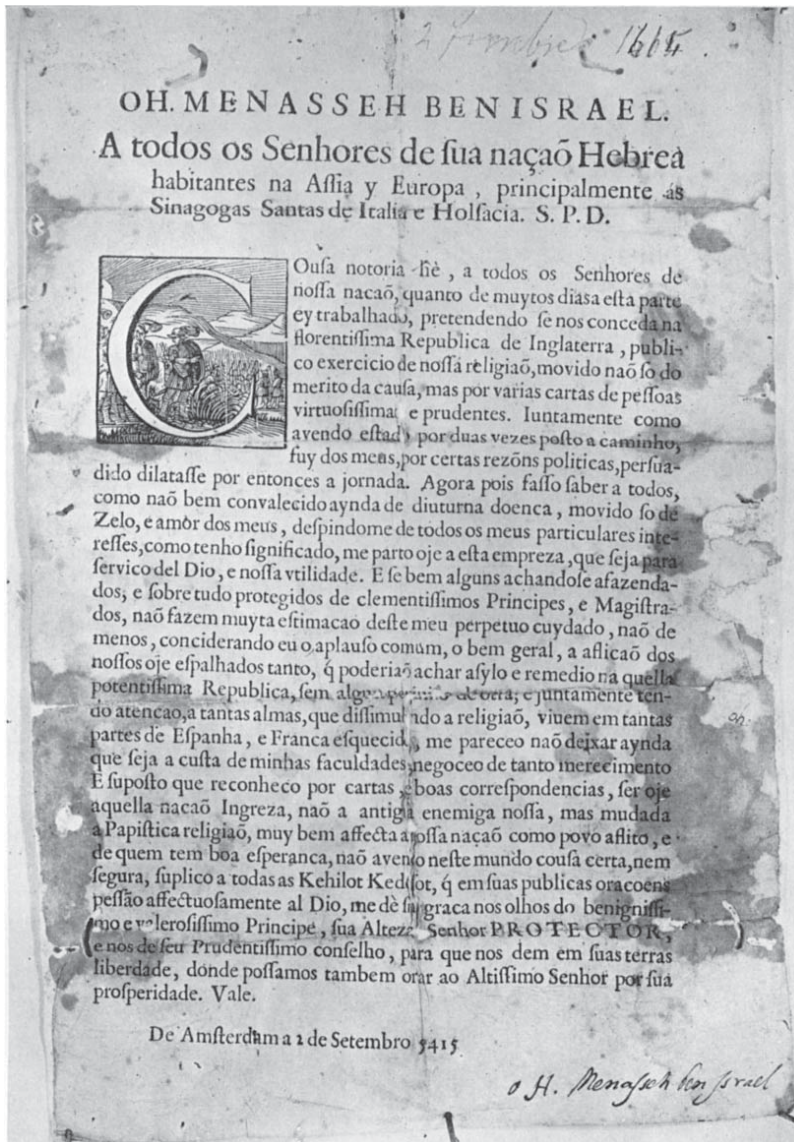 2 1664.
OH. MENASSEH BEN ISRAEL.
A todos os Senhores de ſua naçaõ Hebrea
habitantes na Aſſia y Europa, principalmente ás
Sinagogas Santas de Italia e Holſacia. S. P. D.
COuſa notoria hè, a todos os Senhores de
noſſa nacaõ, quanto de muytos diasa eſta parte
ey trabalhado, pretendendo ſe nos conceda na
florentiſſima Republica de Inglaterra, publi-
co exercicio de noſſa religiaõ, movido naõ ſo do
merito da cauſa, mas por varias cartas de peſſoas
virtuoſiſſima e prudentes. Iuntamente como
avendo eſtad por duas vezes poſto a caminho,
fuy dos meus, por certas rezōns politicas, perſua-
dido dilataſſe por entonces a jornada. Agora pois faſſo ſaber a todos,
como naõ bem convalecido aynda de diuturna doenca, movido ſo de
Zelo, e amòr dos meus, deſpindome de todos os meus particulares inte-
reſſes, como tenho ſignificado, me parto oje a eſta empreza, que ſeja para
ſervico del Dio, e noſſa vtilidade. E ſe bem alguns achandoſe afazenda-
dos, e ſobre tudo protegidos de clementiſſimos Principes, e Magiſtra-
dos, naõ fazem muyta eſtimacao deſte meu perpetuo cuydado, naõ de
menos, conciderando eu o aplauſo comum, o bem geral, a aflicaõ dos
noſſos oje eſpalhados tanto, q́ poderiaõ achar aſylo e remedio na quella
potentiſſima Republica, ſem e juntamente ten-
do atencao, a tantas almas, que diſſimul ndo a religiaõ, viuem em tantas
partes de Eſpanha, e Franca eſquecid, me pareceo naõ deixar aynda
que ſeja a cuſta de minhas faculdades, negoceo de tanto merecimento
E ſupoſto que reconheco por cartas, e boas correſpondencias, ſer oje
aquella nacaõ Ingreza, naõ a antiga enemiga noſſa, mas mudada
a Papiſtica religiaõ, muy bem affecta a noſſa naçaõ como povo aflito, e
de quem tem boa eſperanca, naõ avendo neſte mundo couſa certa, nem
ſegura, ſuplico a todas as Kehilot Ked ſot, q́ em ſuas publicas oracoens
peſſão affectuoſamente al Dio, me dè ſua graca nos olhos do benigniſſi-
mo e valeroſiſſimo Principe, ſua Alteza Senhor PROTECTOR,
e nos de ſeu Prudentiſſimo conſelho, para que nos dem em ſuas terras
liberdade, donde poſſamos tambem orar ao Altiſſimo Senhor por ſua
proſperidade. Vale.
De Amſterdam a 2 de Setembro 5415
o H. Menaſſeh ben Jsrael